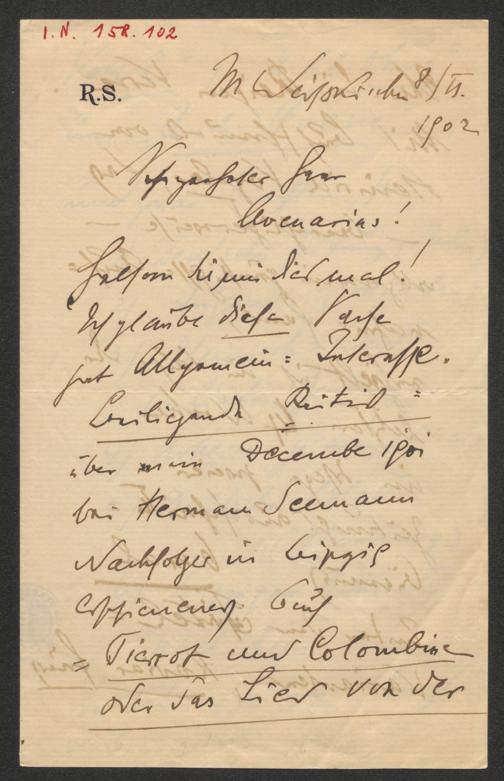 I.N. 158.102
R.S.
M. Weißkirchen 8/II.
1902
Sehr geehrter Herr
Avenarius!
Helfen Sie mir diesmal!
Ich glaube diese Sache
hat Allgemein=Interesse.
Beiliegende Kritik =
über mein Decembre 1901
bei Hermann Seemann
Nachfolger in Leipzig
erschienenes Buch
= Pierrot und Colombine
oder das Lied von der